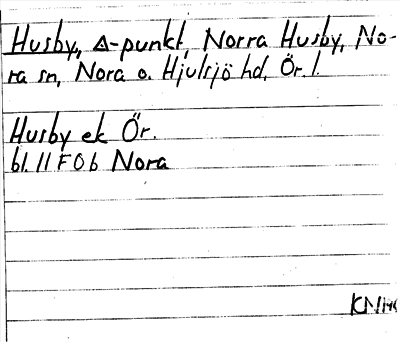 Husby, Δ-punkt, Norra Husby, No-
ra sn, Nora o. Hjulsjö hd, Ör. l.
Husby ek Ör.
bl. 11 F 0 b Nora